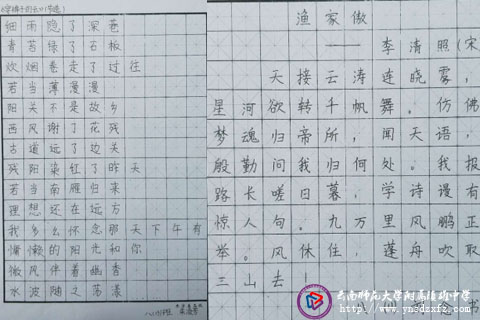 细雨隐了深巷
青苔绿了石板
炊烟卷走了过往
若当薄漫漫
阳关不是故乡
西风谢了花残
古道远了边关
残阳染红了昨天
若当南雁归来
理想还在远方
我多么怀念那天下午有
慵懒的阳光和你
微风伴着幽香
水波随之荡漾
渔家傲
——李清照(宋)
天接云涛连晓雾,
星河欲转千帆舞。仿佛
梦魂归帝所,闻天语,
殷勤问我归何处。我报
路长嗟日暮,学诗谩有
惊人句。九万里风鹏正
举。风休住,蓬舟吹取
三山去!
云南师范大学附属镇雄中学
www.ynsdzxfz.com